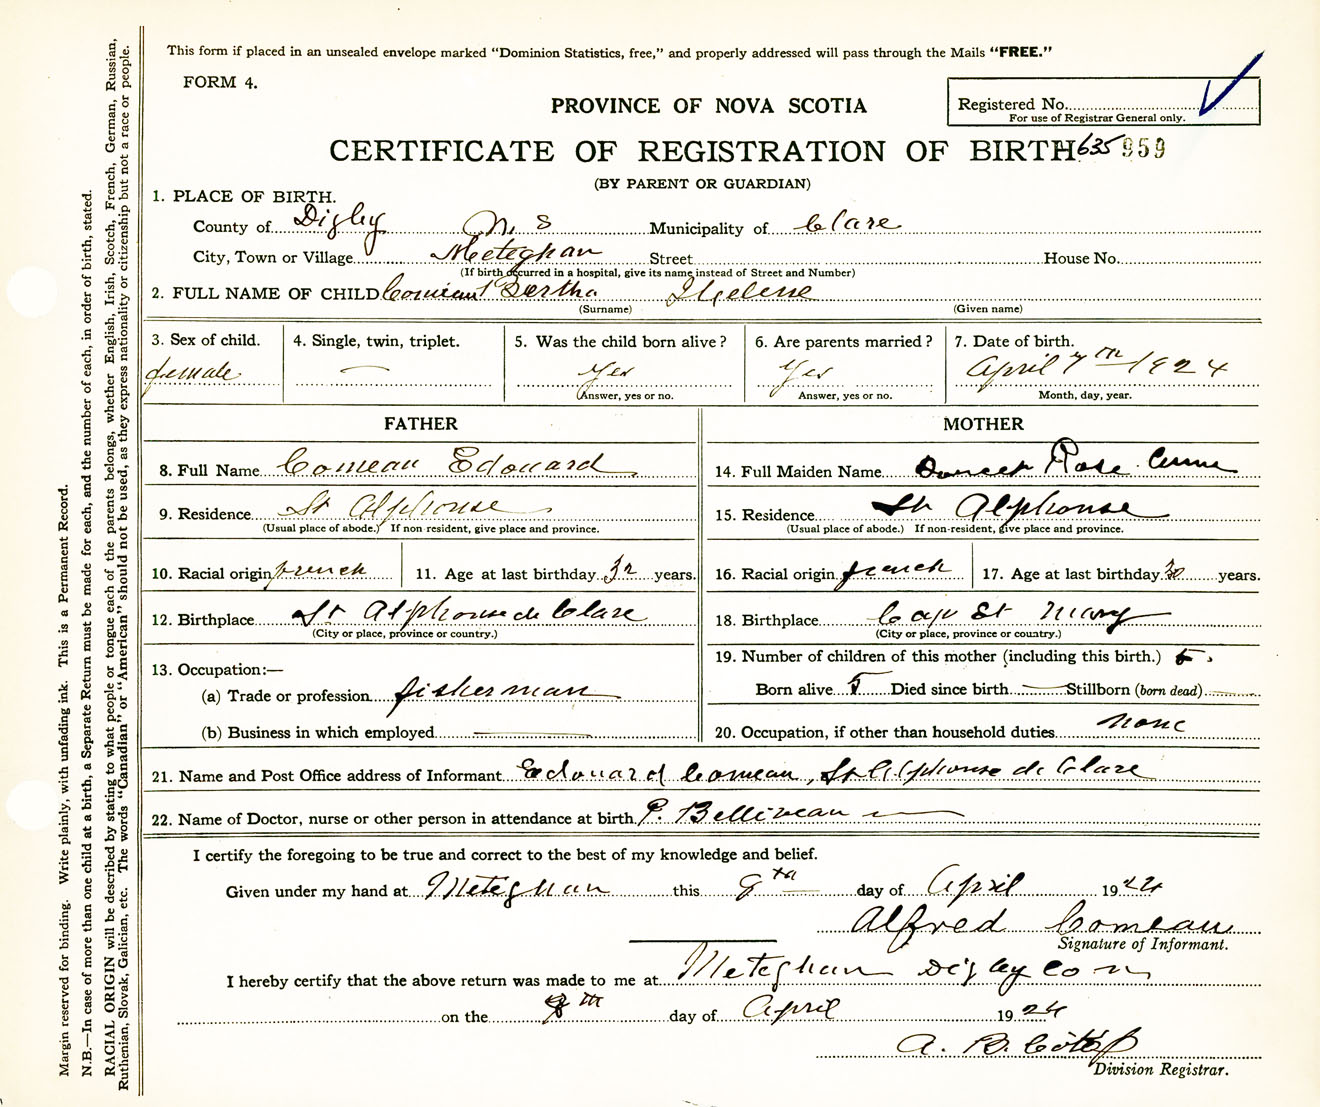 This form if placed in an unsealed envelope marked “Dominion Statistics, free,” and properly addressed will pass through the Mails “FREE.”
FORM 4.
PROVINCE OF NOVA SCOTIA
Registered No.
For use of Registrar General only.
CERTIFICATE OF REGISTRATION OF BIRTH 635 959
(BY PARENT OR GUARDIAN)
1. PLACE OF BIRTH.
County of Digby N. S Municipality of Clare
City, Town or Village Meteghan Street House No.
(If birth occurred in a hospital, give its name instead of Street and Number)
2. FULL NAME OF CHILD Comeau Bertha Helene
(Surname) (Given name)
3. Sex of child. 4. Single, twin, triplet. 5. Was the child born alive? 6. Are parents married? 7. Date of birth.
female Yes Yes April 7th 1924
Answer, yes or no. Answer, yes or no. Month, day, year.
FATHER MOTHER
8. Full Name Comeau Edouard 14. Full Maiden Name Doucet Rose Anne
9. Residence St Alphonse 15. Residence St Alphonse
(Usual place of abode.) If non resident, give place and province. (Usual place of abode.) If non-resident, give place and province.
10. Racial origin french 11. Age at last birthday 32 years. 16. Racial origin french 17. Age at last birthday 30 years.
12. Birthplace St Alphonse de Clare 18. Birthplace Cap St Mary
(City or place, province or country.) (City or place, province or country.)
13. Occupation:— 19. Number of children of this mother (including this birth.) 5.
(a) Trade or profession fisherman Born alive 5 Died since birth Stillborn (born dead)
(b) Business in which employed 20. Occupation, if other than household duties none
21. Name and Post Office address of Informant Edouard Comeau, St Alphonse de Clare
22. Name of Doctor, nurse or other person in attendance at birth P. Belliveau
I certify the foregoing to be true and correct to the best of my knowledge and belief.
Given under my hand at Meteghan this 8th day of April 1924
Alfred Comeau
Signature of Informant.
I hereby certify that the above return was made to me at Meteghan Digby Co n
on the 8th day of April 1924
A. B.
Division Registrar.
Margin reserved for binding. Write plainly, with unfading ink. This is a Permanent Record.
N.B.—In case of more than one child at a birth, a Separate Return must be made for each, and the number of each, in order of birth, stated.
RACIAL ORIGIN will be described by stating to what people or tongue each of the parents belongs, whether English, Irish, Scotch, French, German, Russian,
Ruthenian, Slovak, Galician, etc. The words “Canadian” or “American” should not be used, as they express nationality or citizenship but not a race or people.